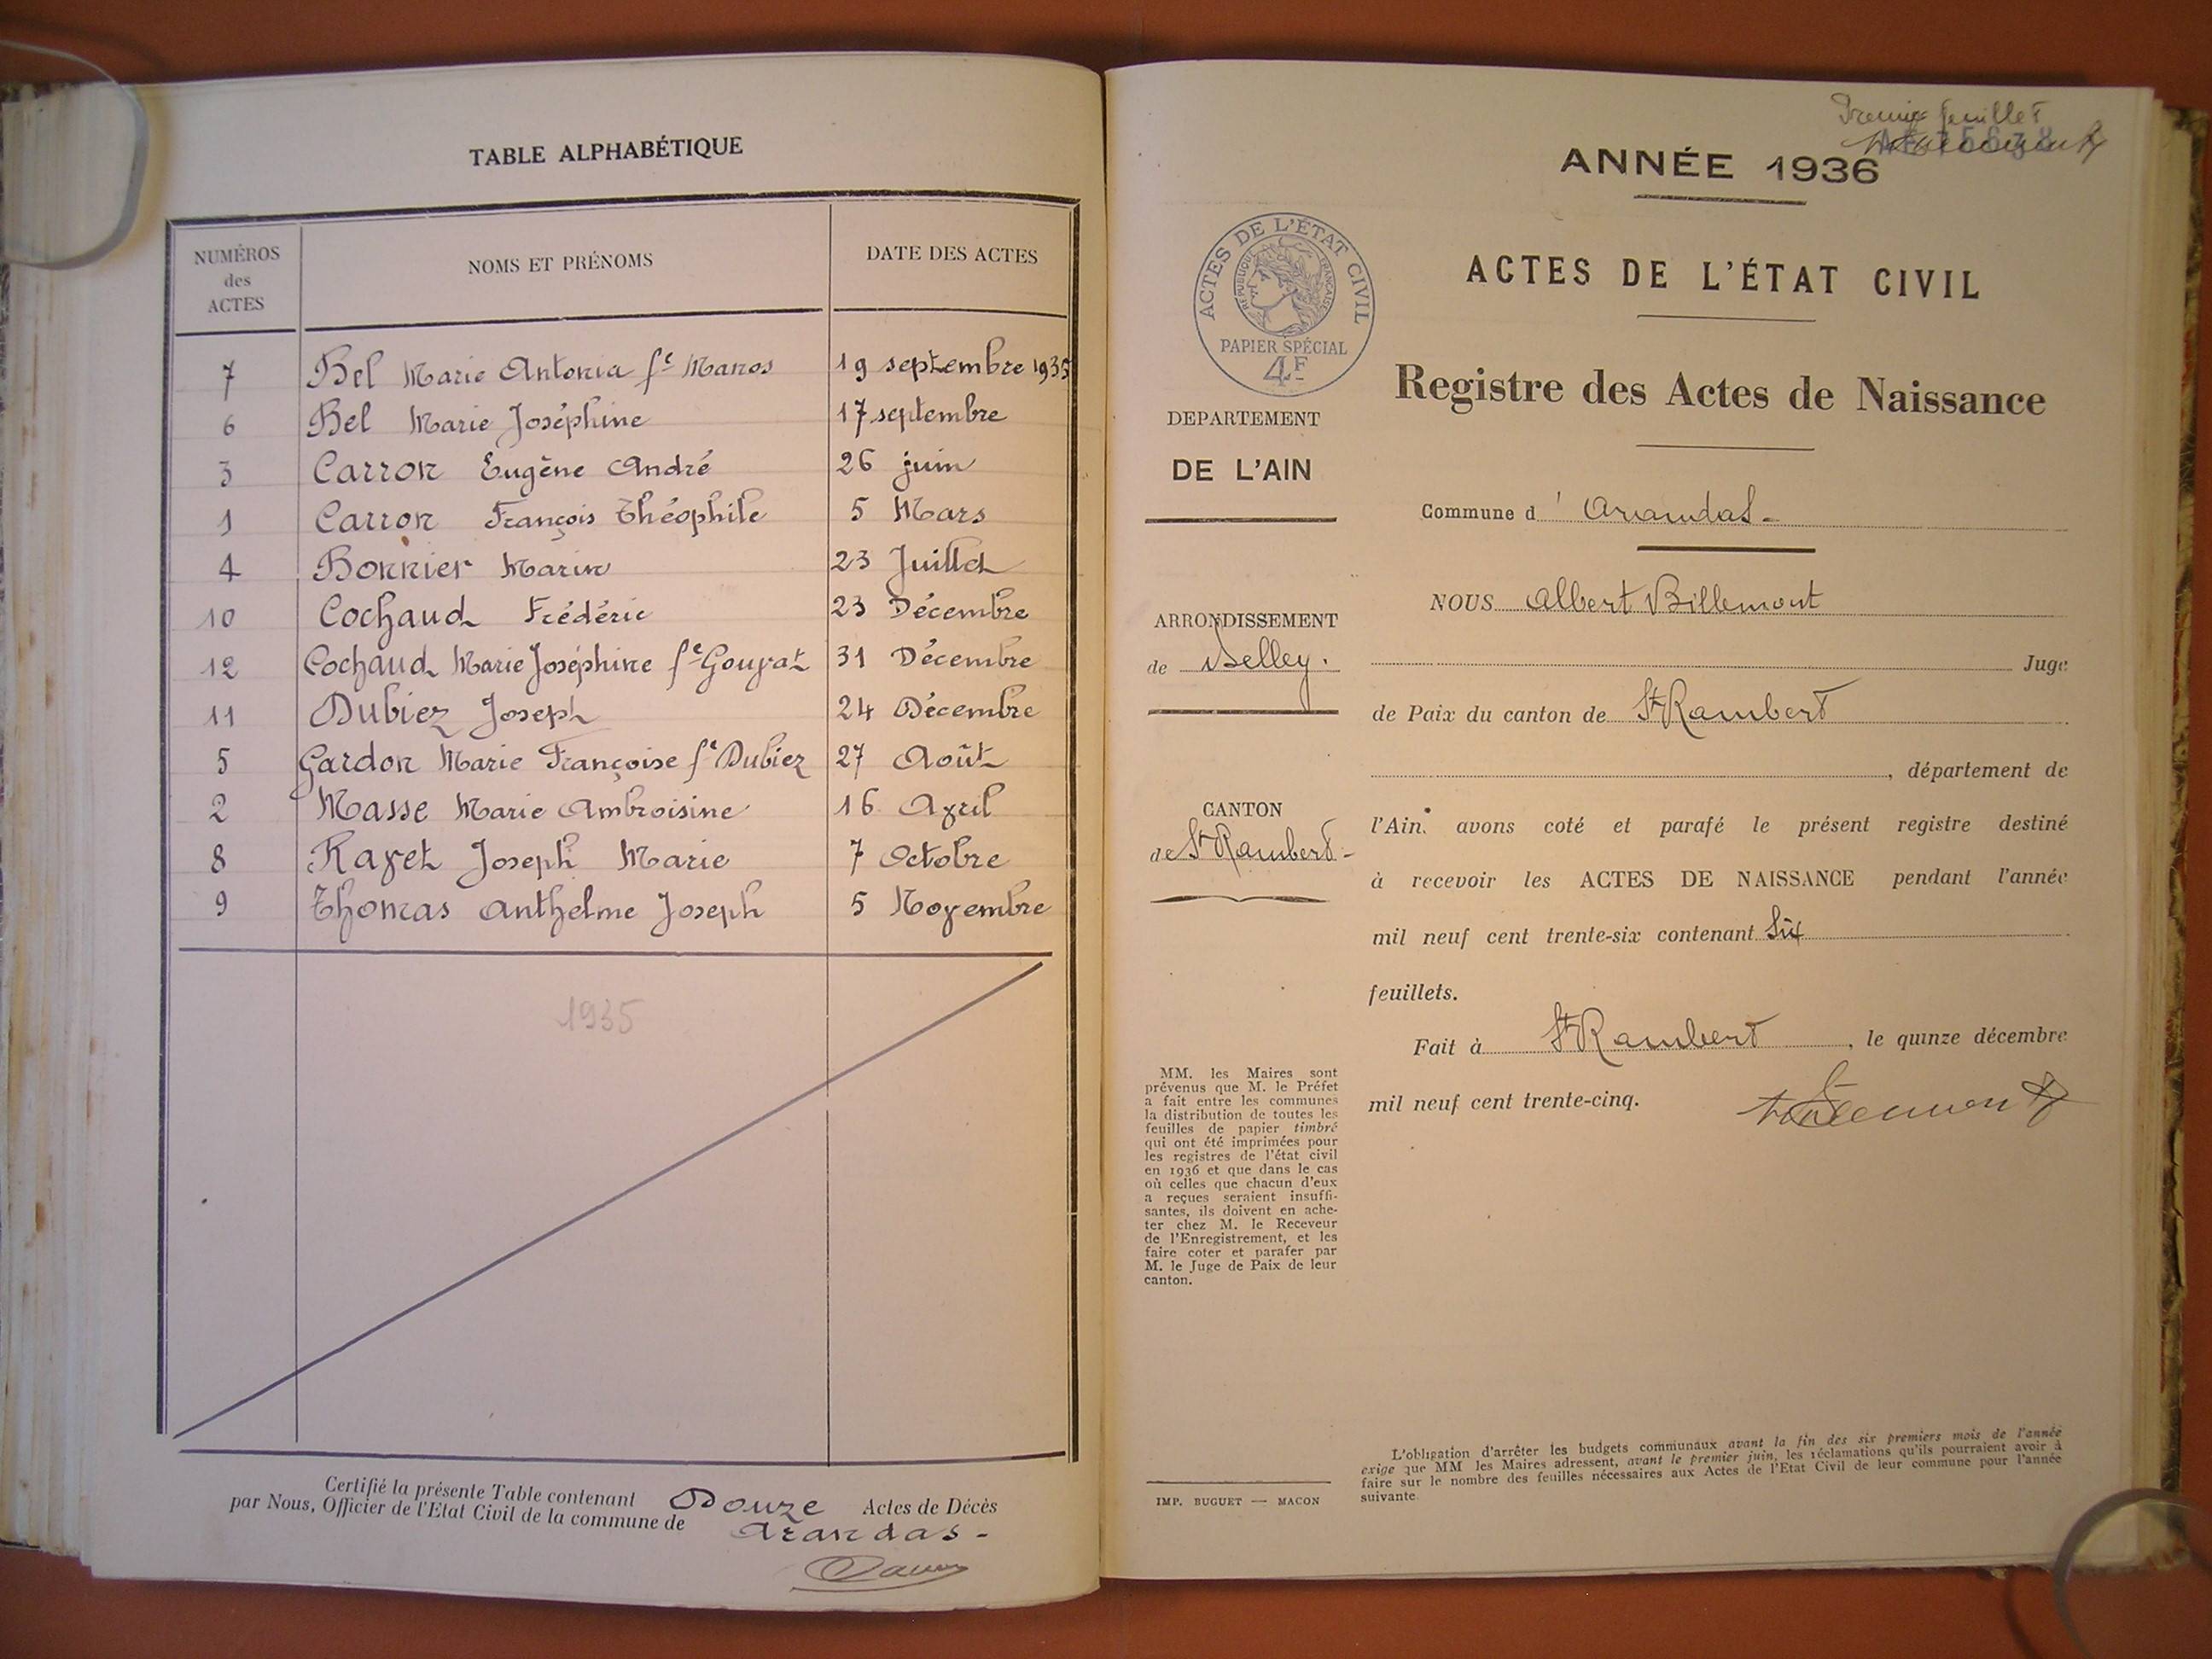 TABLE ALPHABÉTIQUE
NUMÉROS des ACTES NOMS ET PRÉNOMS DATE DES ACTES
7 Bel Marie Antonia fe Manos 19 septembre 1935
6 Bel Marie Joséphine 17 septembre
3 Carron Eugène André 26 juin
1 Carron François Théophile 5 Mars
4 Bonnier Marin 23 Juillet
10 Cochaud Frédéric 23 Décembre
12 Cochaud Marie Joséphine fe Gouyat 31 Décembre
11 Dubiez Joseph 24 Décembre
5 Gardon Marie Françoise fe Dubiez 27 Août
2 Masse Marie Ambroisine 16 Avril
8 Ravet Joseph Marie 7 Octobre
9 Thomas Anthelme Joseph 5 Novembre
1935
Certifié la présente Table contenant Douze Actes de Décès
par Nous, Officier de l'Etat Civil de la commune de Arandas -
Premier feuillet
ANNÉE 1936
ACTES DE L'ÉTAT CIVIL
RÉPUBLIQUE FRANÇAISE
PAPIER SPÉCIAL
4F
ACTES DE L'ÉTAT CIVIL
Registre des Actes de Naissance
DEPARTEMENT
DE L'AIN
ARRONDISSEMENT
de Belley.
CANTON
de St Rambert -
MM. les Maires sont
prévenus que M. le Préfet
a fait entre les communes
la distribution de toutes les
feuilles de papier timbré
qui ont été imprimées pour
les registres de l'état civil
en 1936 et que dans le cas
où celles que chacun d'eux
a reçues seraient insuffi-
santes, ils doivent en ache-
ter chez M. le Receveur
de l'Enregistrement, et les
faire coter et parafer par
M. le Juge de Paix de leur
canton.
IMP. BUGUET — MACON
Commune d' Arandas -
NOUS Albert Billemont
Juge
de Paix du canton de St Rambert
, département de
l'Ain, avons coté et parafé le présent registre destiné
à recevoir les ACTES DE NAISSANCE pendant l'année
mil neuf cent trente-six contenant Six
feuillets.
Fait à St Rambert, le quinze décembre
mil neuf cent trente-cinq.
L'obligation d'arrêter les budgets communaux avant la fin des six premiers mois de l'année
exige que MM les Maires adressent, avant le premier juin, les réclamations qu'ils pourraient avoir à
faire sur le nombre des feuilles nécessaires aux Actes de l'Etat Civil de leur commune pour l'année
suivante.